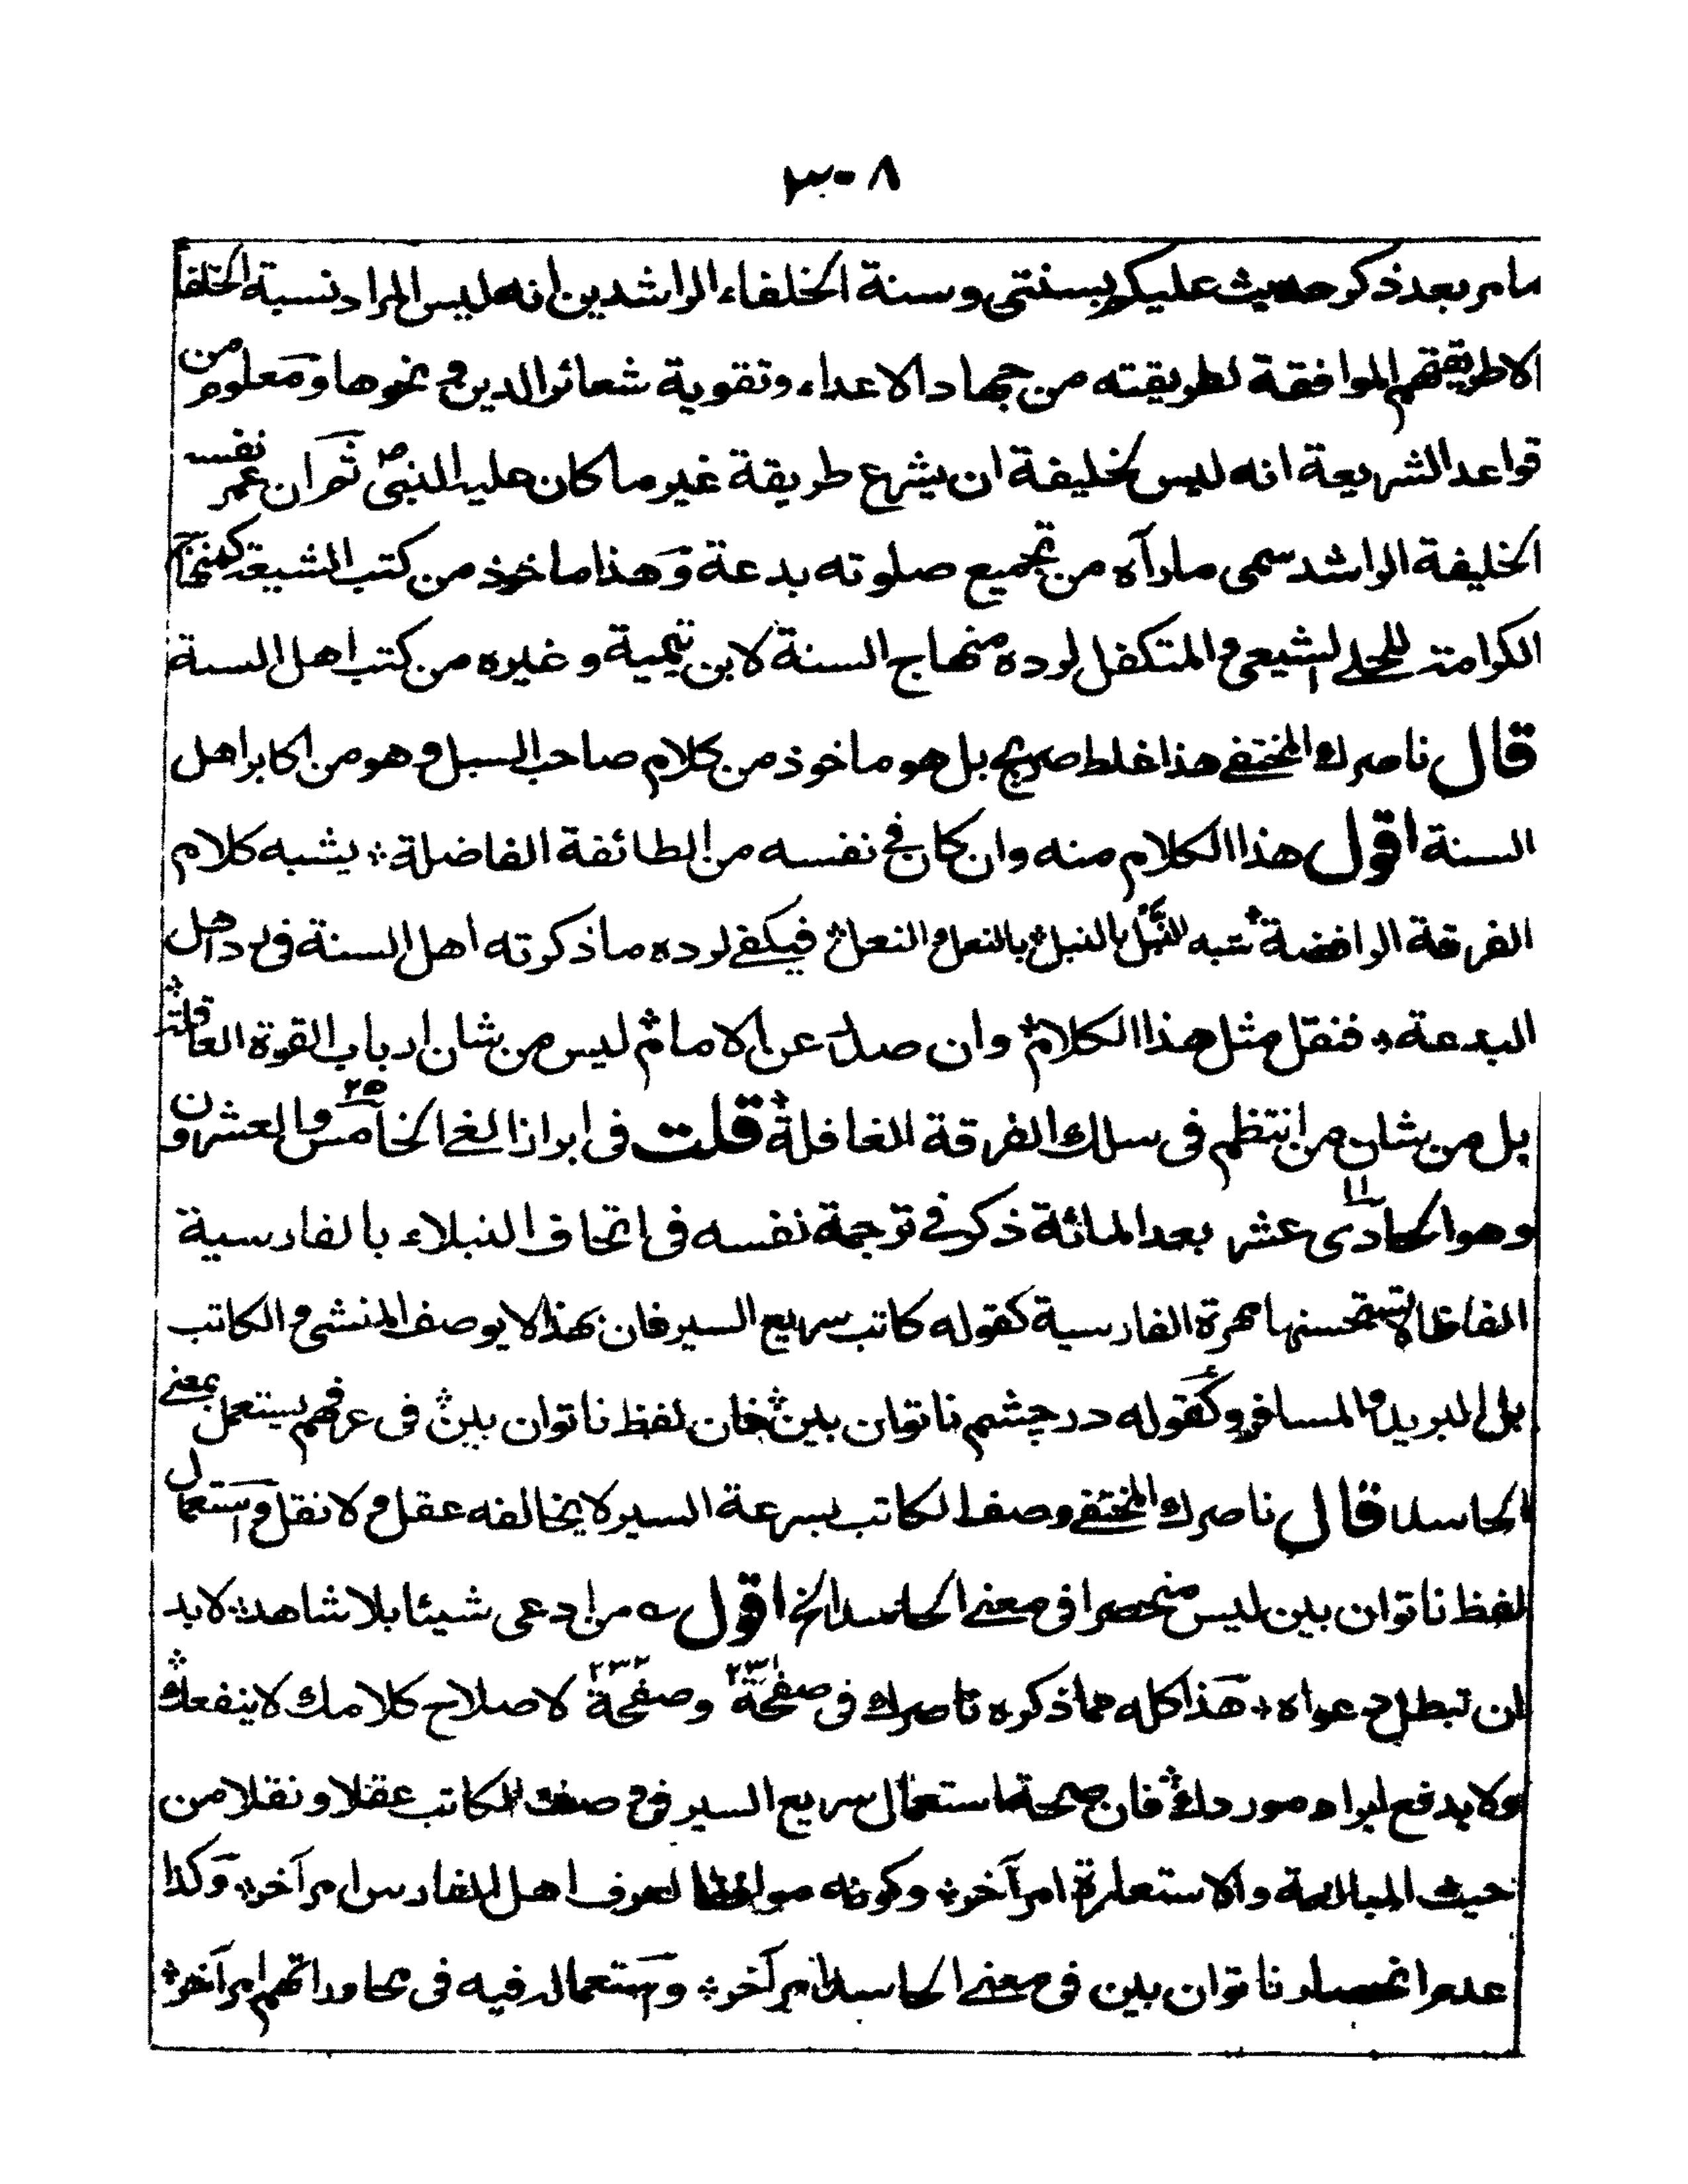 ٣٠٨
مامر بعد ذكر حديث عليكم بسنتى وسنة الخلفاء الراشدين انه ليس المراد نسبة الخلفا
الا طريقتهم الموافقة لطريقته من جهاد الاعداء وتقوية شعائر الدين ونحوها ومعلوم من
قواعد الشريعة انه ليس لخليفة ان يشرع طريقة غير ما كان عليه النبى ص ثم ان عمر نفسه
الخليفة الراشد سمى ما رآه من تجميع صلوته بدعة وهذا ماخوذ من كتب الشيعة كمنهاج
الكرامة للحلى الشيعى والمتكفل لرده منهاج السنة لابن تيمية وغيره من كتب اهل السنة
قال ناصرك المختفى هذا غلط صريح بل هو ماخوذ من كلام صاحب السبل وهو من اكابر اهل
السنة اقول هذا الكلام منه وان كان فى نفسه من الطائفة الفاضلة يشبه كلام
الفرقة الرافضة شبه النبل بالنبل والنعل بالنعل فيكفى لرده ما ذكرته اهل السنة فى رد اهل
البدعة فنقل مثل هذا الكلام وان صدر عن الامام ليس من شان ارباب القوة العاقلة
بل من شان من انتظم فى سلك الفرقة الغافلة قلت فى ابراز الغى الخامس والعشرون ٢٥
وهو الحادى عشر ١١ بعد المائة ذكر فى ترجمة نفسه فى اتحاف النبلاء بالفارسية
الفاظا لا تستحسنها مهرة الفارسية كقوله كاتب سريع السير فان بهذا لا يوصف المنشى والكاتب
بل البريد والمسافر وكقوله در چشم ناتوان بين فان لفظ ناتوان بين فى عرفهم يستعمل بمعنى
الحاسد قال ناصرك المختفى وصف الكاتب بسرعة السير لا يخالفه عقل ولا نقل واستعمال
لفظ ناتوان بين ليس منحصرا فى معنى الحاسد الخ اقول ؎ من ادعى شيئا بلا شاهد لا بد
ان تبطل دعواه هذا كله مما ذكره ناصرك فى صفحة ٢٣١ وصفحة ٢٣٢ لاصلاح كلامك لا ينفعك
ولا يدفع ايراد موردك فان صحة استعمال سريع السير فى صفة الكاتب عقلا ونقلا من
حيث المبالغة والاستعارة امر آخر وكونه موافقا لعرف اهل الفارس امر آخر وكذا
عدم انحصار ناتوان بين فى معنى الحاسد امر آخر واستعماله فيه فى محاوراتهم امر آخر